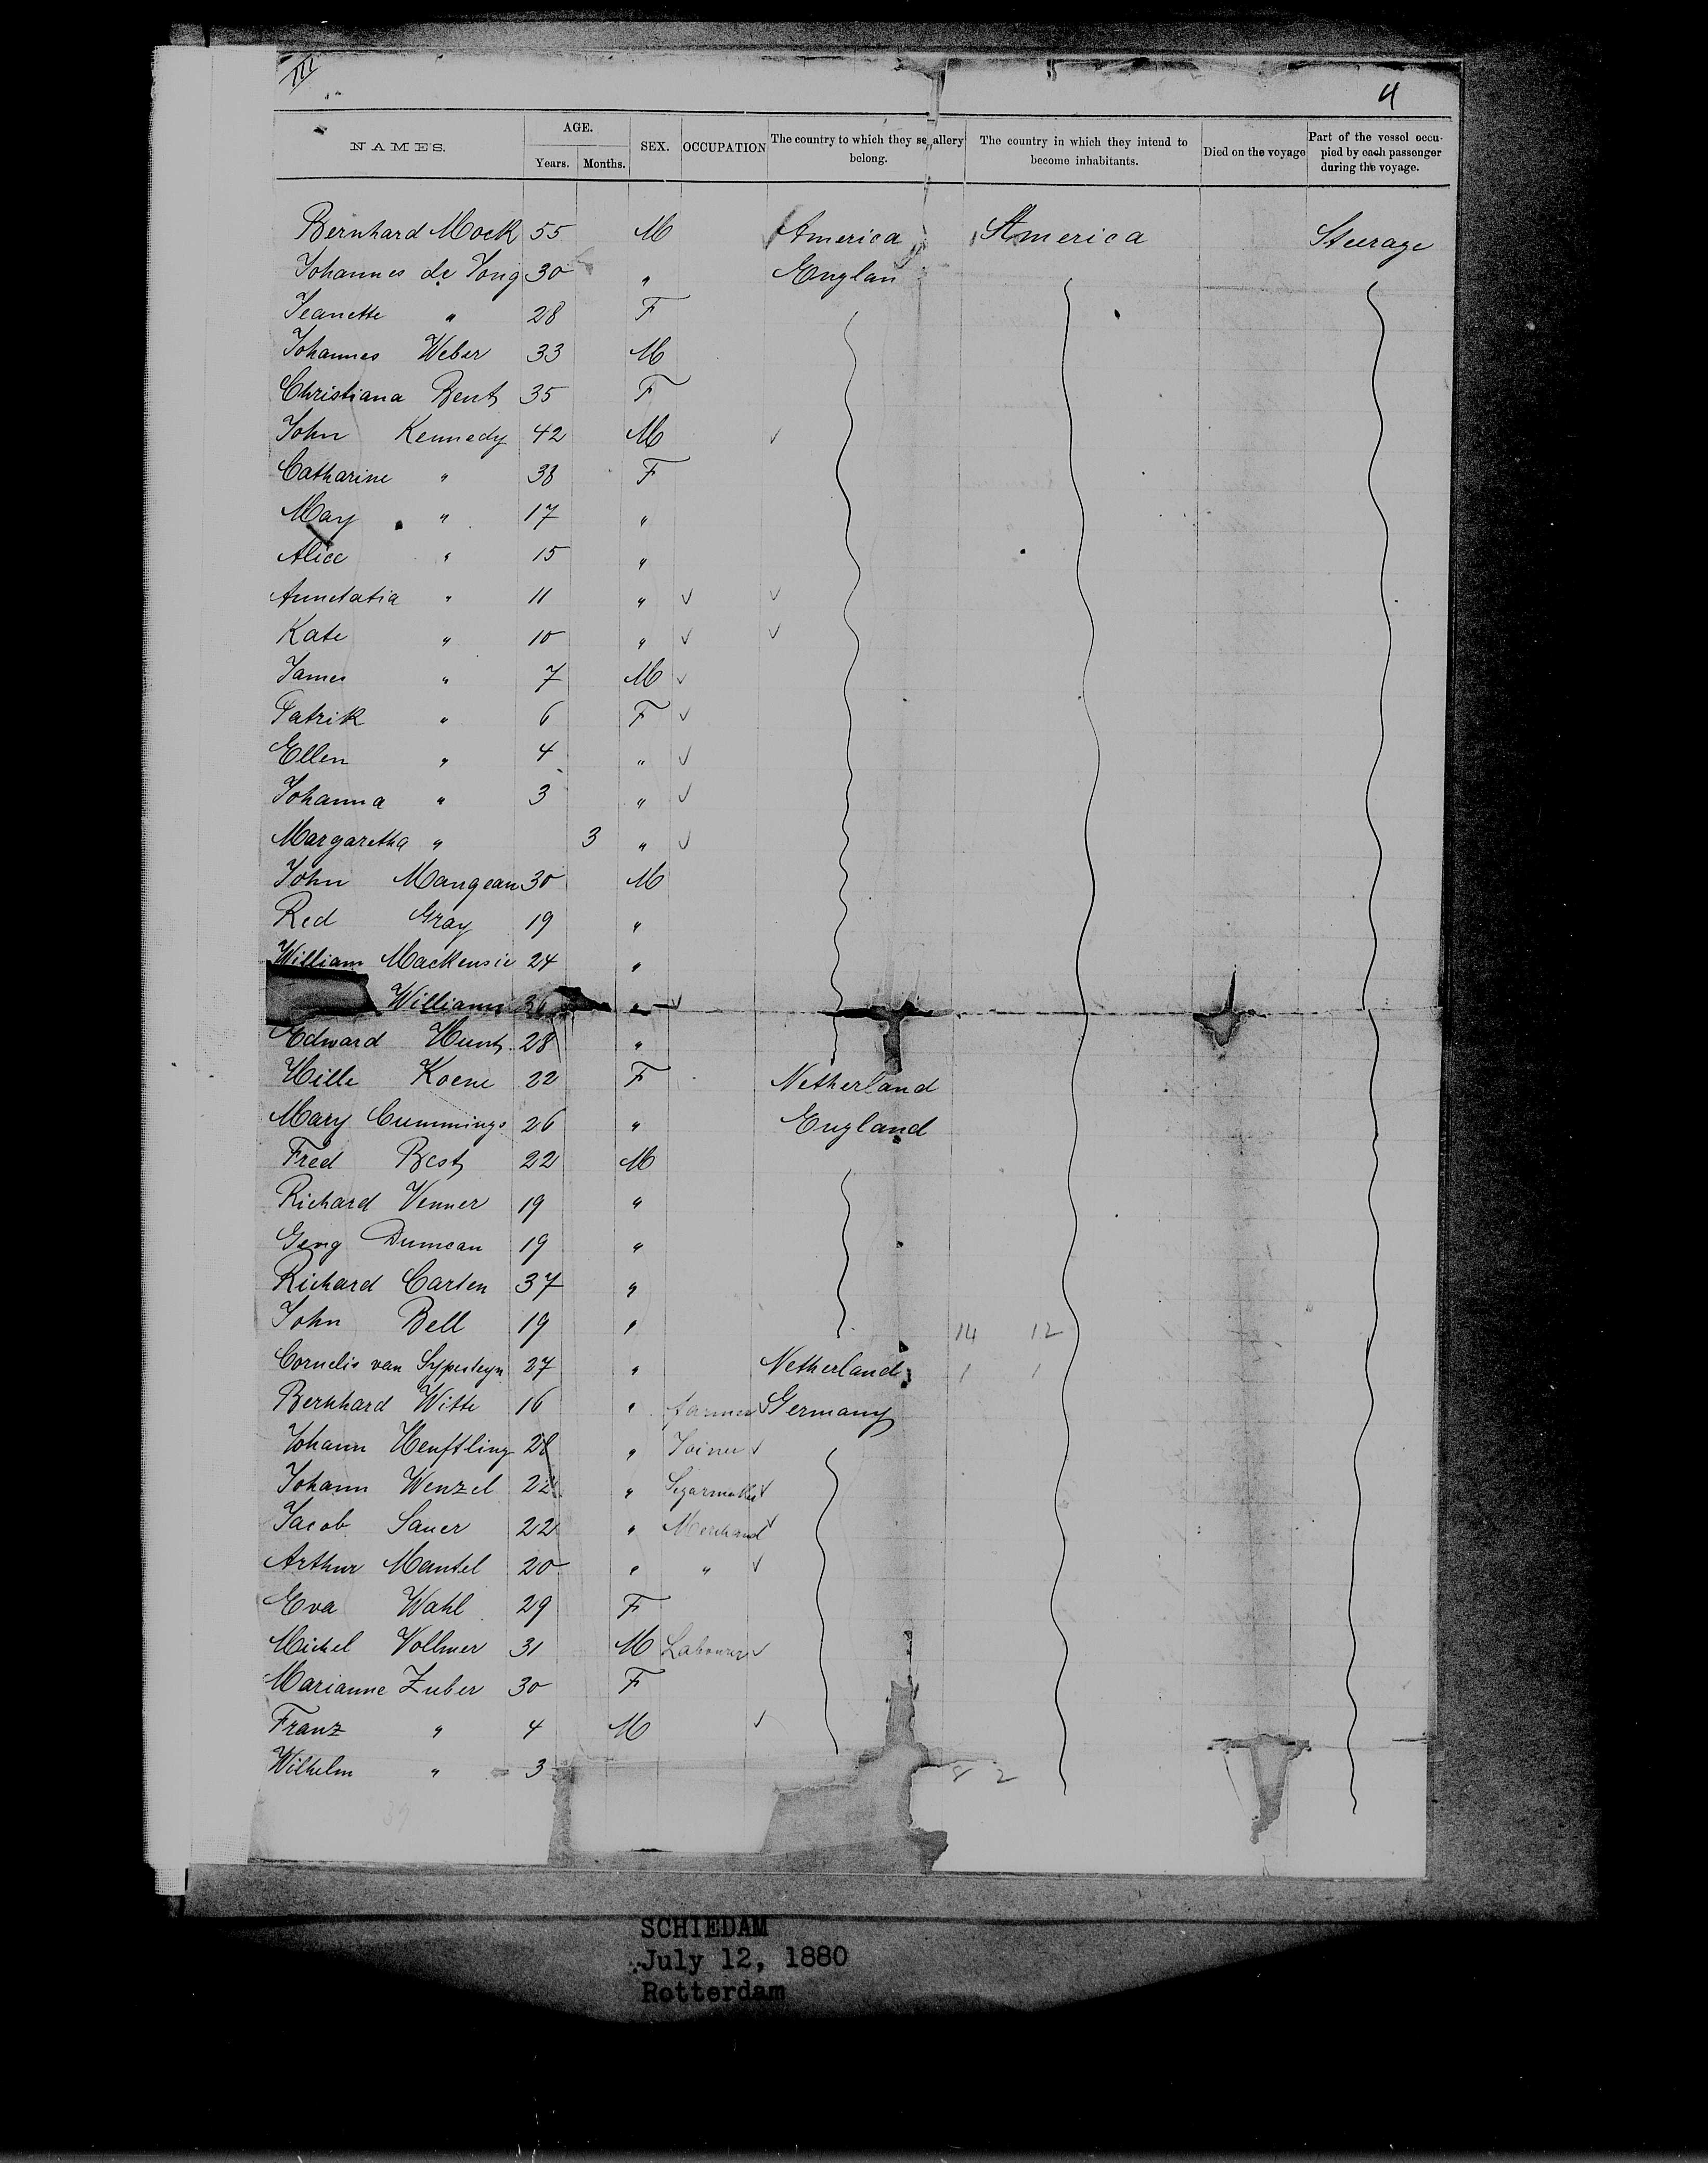 4
NAMES. AGE. Years. Months. SEX. OCCUPATION The country to which they se allery belong. The country in which they intend to become inhabitants. Died on the voyage Part of the vessel occupied by each passenger during the voyage.
Bernhard Mock 55 M America America Steerage
Johannes de Jong 30 " Englan
Jeanette " 28 F
Johannes Weber 33 M
Christiana Bent 35 F
John Kennedy 42 M ✓
Catharine " 38 F
May " 17 "
Alice " 15 "
" 11 " ✓ ✓
Kate " 10 " ✓ ✓
James " 7 M ✓
Patrik " 6 F ✓
Ellen " 4 " ✓
Johanna " 3 " ✓
Margaretha " 3 " ✓
John Mangean 30 M
Red Gray 19 "
William Mackensie 24 "
Williams " ✓
Edward Hunt 28 "
Hille Koene 22 F Netherland
Mary Cummings 26 " England
Fred Best 22 M
Richard Venner 19 "
Georg Dumcan 19 "
Richard Carten 37 "
John Bell 19 " 14 12
Cornelis van Sypesteyn 27 " Netherland 1 1
Bernhard Witte 16 " farmer ✓ Germany
Johann Henftling 28 " Joiner ✓
Johann Wenzel 22 " Segarmaker ✓
Jacob Sauer 22 " Merchand ✓
Arthur Mantel 20 " " ✓
Eva Wahl 29 F
Michel Vollmer 31 M Labourer ✓
Marianne Zuber 30 F
Franz " 4 M ✓
Wilhelm " 3 8 2
39
SCHIEDAM
July 12, 1880
Rotterdam